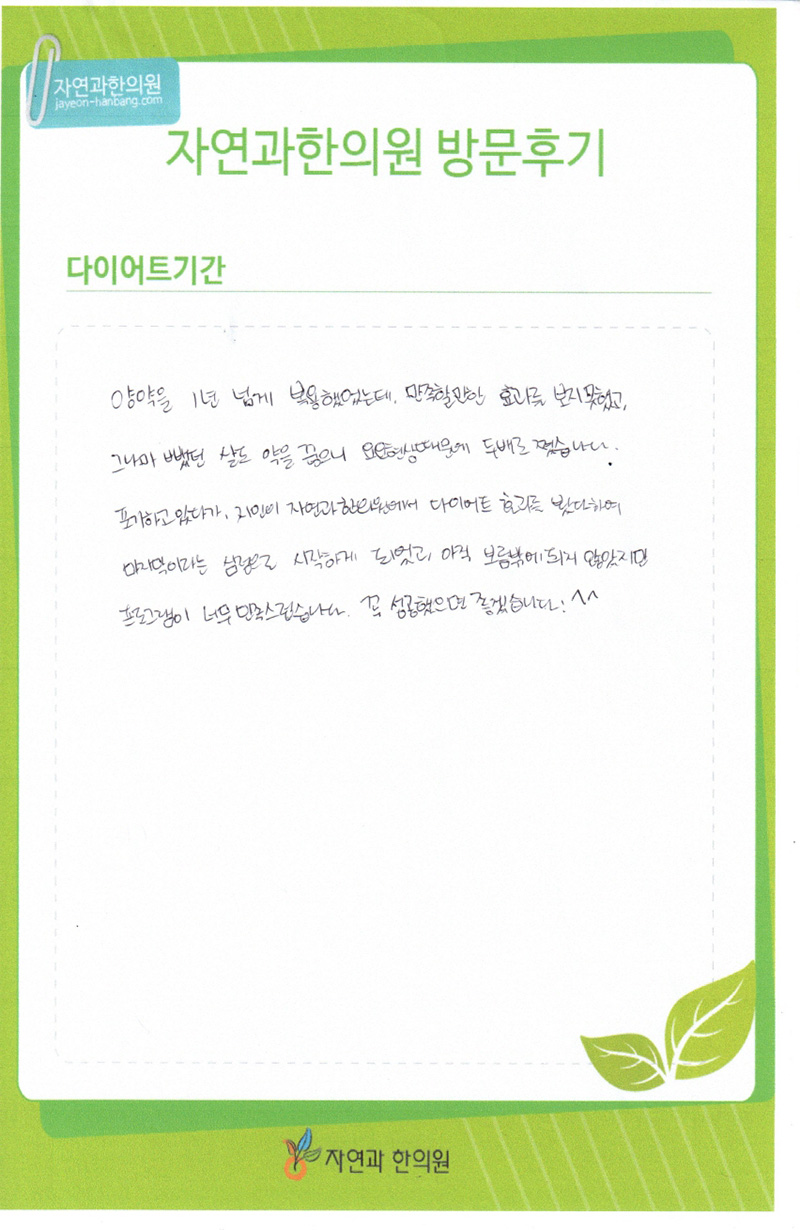 자연과한의원
jayeon-hanbang.com
자연과한의원 방문후기
다이어트기간
양약을 1년 넘게 복용했었는데, 만족할만한 효과를 보지못했고,
그나마 뺐던 살도 약을 끊으니 요요현상때문에 두배로 쪘습니다.
포기하고 있다가, 지인이 자연과한의원에서 다이어트 효과를 봤다하여
마지막이라는 심정으로 시작하게 되었고, 아직 보름밖에 되지 않았지만
프로그램이 너무 만족스럽습니다. 꼭 성공했으면 좋겠습니다! ^^
자연과 한의원